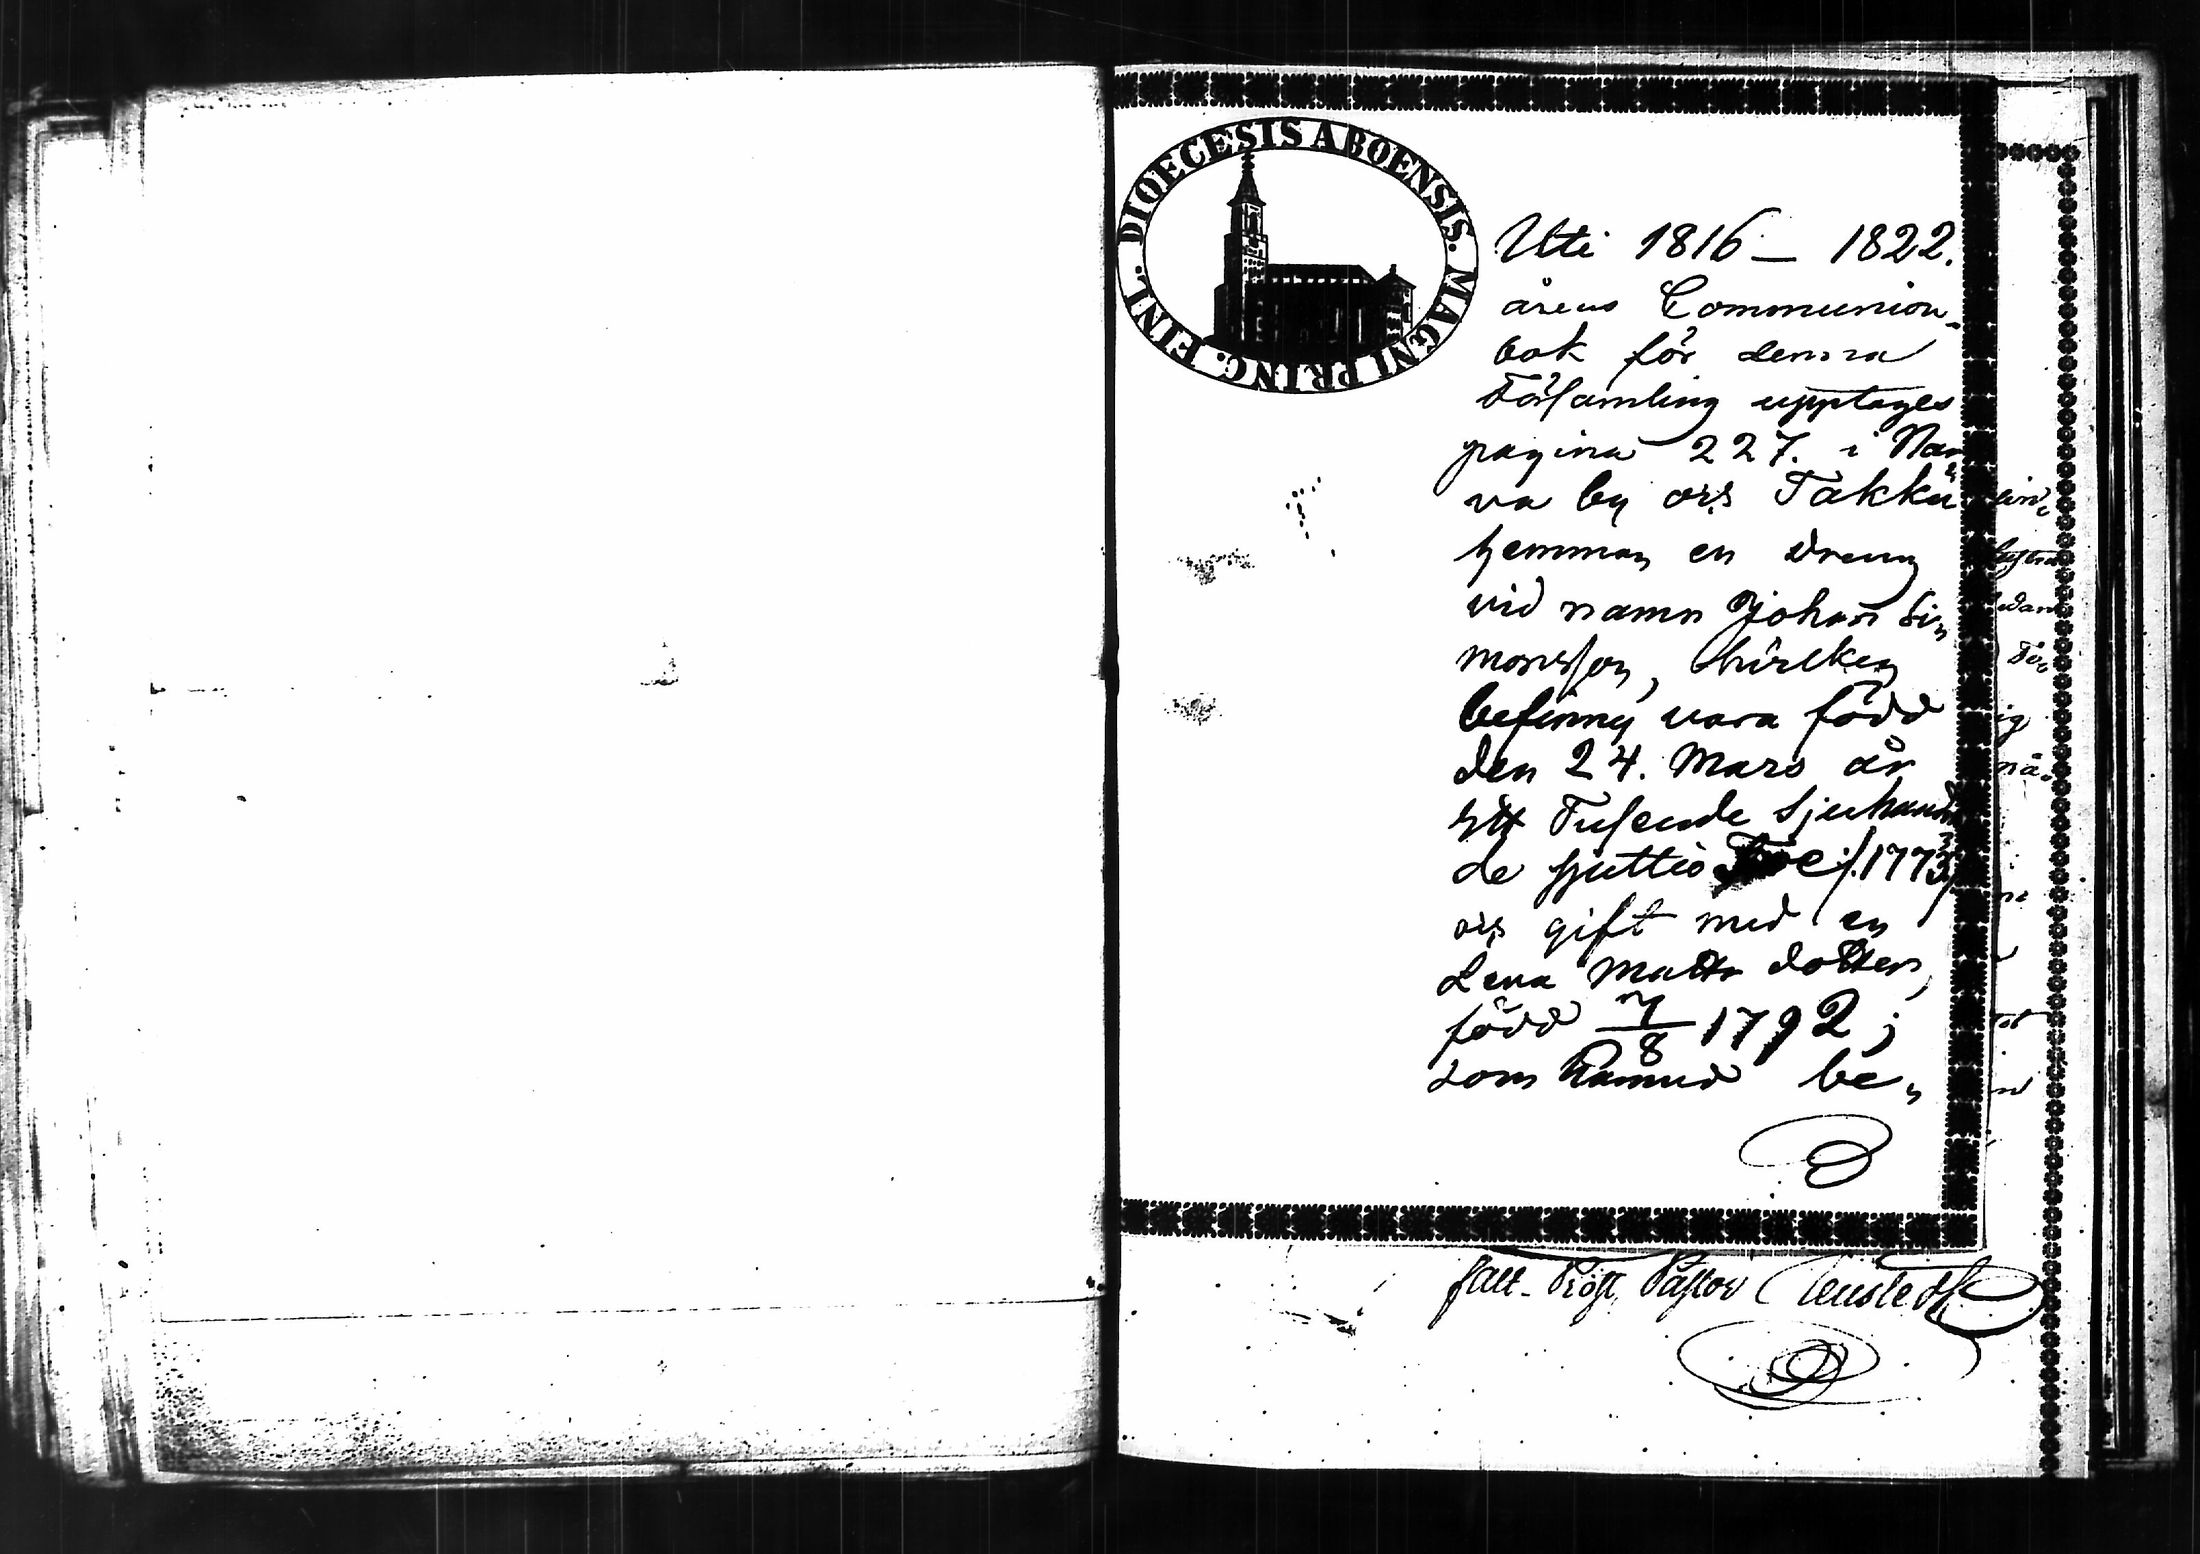 DIOECESIS ABOENSIS. MAGNI PRINC. FINL.
Uti 1816 — 1822.
årens Communion-
bok för denna
Församling upptages
pagina 227. i Nar
va by och Takku
hemman en Dreng
vid namn Johan Si„
monsson, hvilken
befinnes vara född
den 24. Mars år
Ett Tusende Sjuhund
de sjuttio Tre /.1773/
och gift med en
Lena Matts dotter,
född 7/8 1792;
som hämed be„
Past. Prost, Pastor